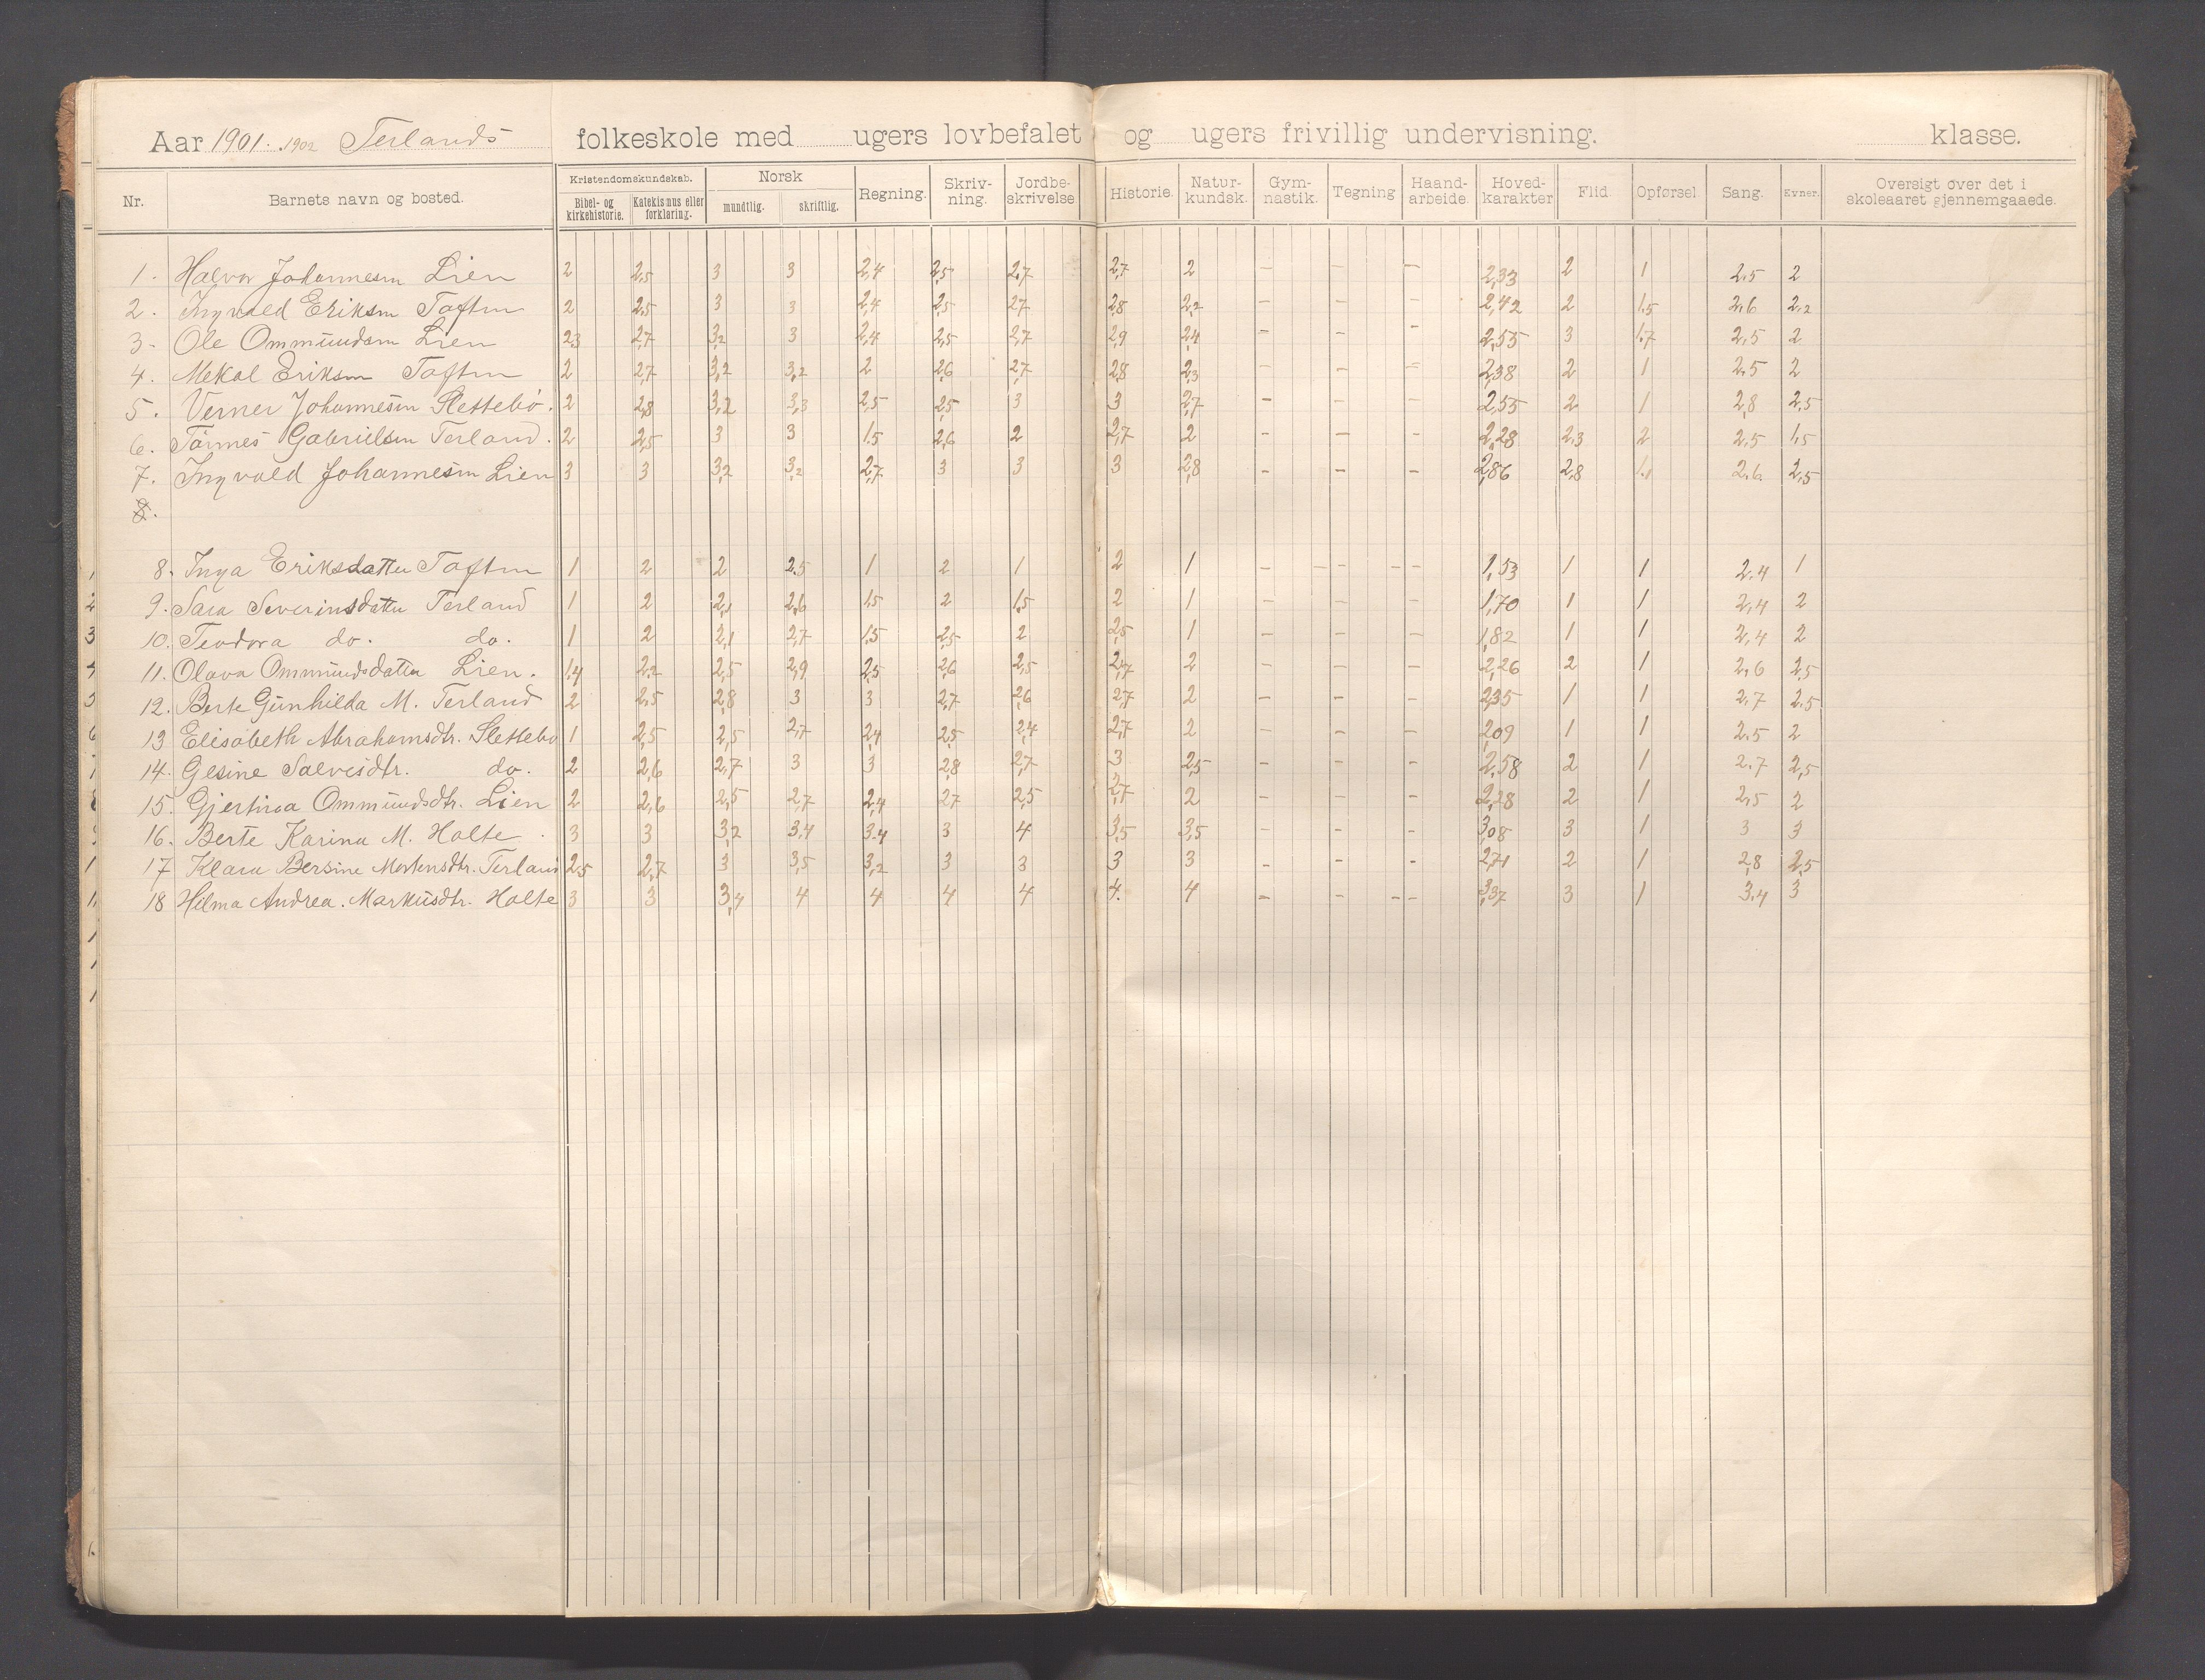 Aar 1901. 1902 Terlands folkeskole med ugers lovbefalet og ugers frivillig undervisning. klasse.
Nr. Barnets navn og bosted. Kristendomskundskab. Bibel- og kirkehistorie. Katekismus eller forklaring. Norsk mundtlig. skriftlig. Regning. Skriv-ning. Jordbe-skrivelse Historie. Natur-kundsk. Gym-nastik. Tegning Haand-arbeide. Hoved-karakter Flid. Opførsel. Sang. Evner. Oversigt over det i skoleaaret gjennemgaaede.
1. Halvor Johannesen Lien 2 2,5 3 3 2,4 2,5 2,7 2,7 2 – – – 2,33 2 1 2.5 2
2. Ingvald Eriksen Toften 2 2,5 3 3 2,4 2,5 2,7 2,8 2,2 – – – 2,42 2 1.5 2,6 2,2
3. Ole Ommundsen Lien 2,3 2,7 3,2 3 2,4 2,5 2,7 2,9 2,4 – – – 2,55 3 1.7 2,5 2
4. Mekal Eriksen Toften 2 2,7 3,2 3,2 2 2,6 2,7 2,8 2,3 – – – 2,38 2 1 2.5 2
5. Verner Johannesen Slettebø. 2 2,8 3,2 3,3 2,5 2,5 3 3 2,7 – – – 2,55 2 1 2,8 2,5
6. Tønnes Gabrielsen Terland. 2 2,5 3 3 1.5 2,6 2 2,7 2 – – – 2,28 2.3 2 2.5 1,5
7. Ingvald Johannesen Lien 3 3 3,2 3,2 2,7 3 3 3 2,8 – – – 2,86 2,8 1.1 2.6 2,5
8.
8. Inga Eriksdatter Toften 1 2 2 2.5 1 2 1 2 1 – – – – – 1,53 1 1 2.4 1
9. Sara Severinsdatter Terland 1 2 2,1 2,6 1,5 2 1.5 2 1 – – – 1,70 1 1 2,4 2
10. Teodora do. do. 1 2 2,1 2,7 1.5 2,5 2 2,5 1 – – – 1,82 1 1 2,4 2
11. Olava Ommundsdatter Lien. 1,4 2,2 2,5 2,9 2,5 2,6 2,5 2,7 2 – – – 2,26 2 1 2,6 2,5
12. Berte Gunhilda M. Terland 2 2,5 2,8 3 3 2,7 2,6 2,7 2 – – – 2,35 1 1 2,7 2.5
13 Elisabeth Abrahamsdtr. Slettebø 1 2,5 2,5 2,7 2,4 2,5 2,4 2,7 2 – – – 2,09 1 1 2.5 2
14. Gesine Salvesdtr. do. 2 2,6 2,7 3 3 2,8 2,7 3 2,5 – – – 2,58 2 1 2.7 2,5
15. Gjertina Ommundsdtr. Lien 2 2,6 2,5 2,7 2,4 2,7 2,5 2,7 2 – – – 2,28 2 1 2,5 2
16. Berte Karina M. Holte 3 3 3,2 3,4 3.4 3 4 3,5 3,5 – – – 3,08 3 1 3 3
17 Klara Bersine Mortensdtr. Terland 2,5 2,7 3 3,5 3,2 3 3 3 3 – – – 2,71 2 1 2,8 2,5
18 Hilma Andrea. Markusdtr. Holte 3 3 3,4 4 4 4 4 4. 4 – – – – 3,37 3 1 3.4 3